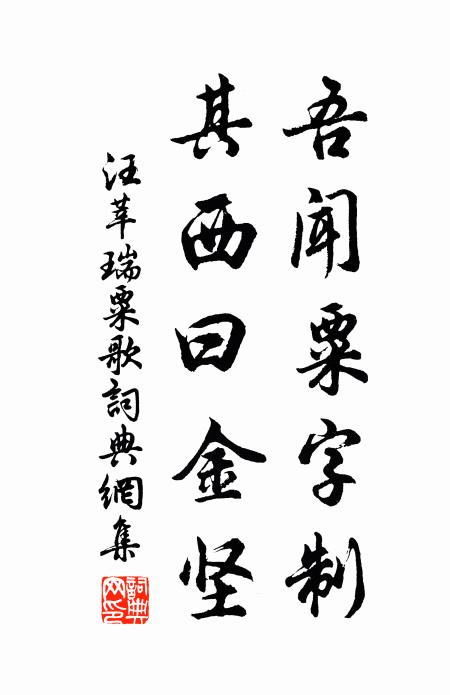 吾闻粟字制
其西曰金坚
汪莘瑞粟歌詞典網集
詞典網印